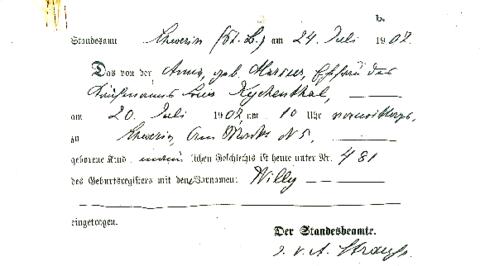 b.
Standesamt Schwerin (St. B.) am 24. Juli 1902.
Das von der Anna, geb. Marcus, Ehefrau des
Kaufmanns Louis Kychenthal,
am 20. Juli 1902, um 10 Uhr vormittags,
zu Schwerin, Am Markt N 5,
geborene Kind männlichen Geschlechts ist heute unter Nr. 481
des Geburtsregisters mit dem Vornamen: Willy
eingetragen.
Der Standesbeamte.